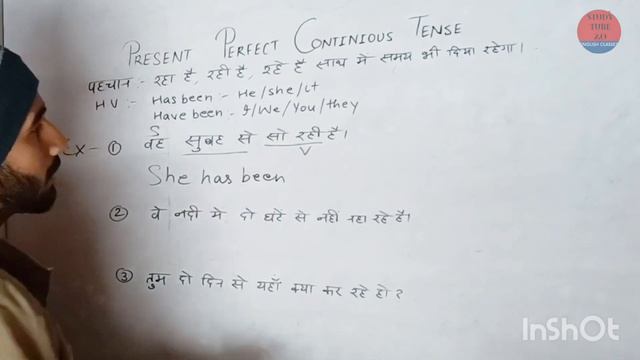 STUDY
TUBE
ZO
ENGLISH CLASSES
PRESENT PERFECT CONTINIOUS TENSE
पहचान :- रहा है, रही है, रहे है साथ मे समय भी दिया रहेगा।
HV :- Has been :- He/she/it
Have been :- I/We/You/they
S
Ex - ① वह सुबह से सो रही है।
V
She has been
② वे नदी मे दो घंटे से नही नहा रहे है।
③ तुम दो दिन से यहाँ क्या कर रहे हो?
InShOt